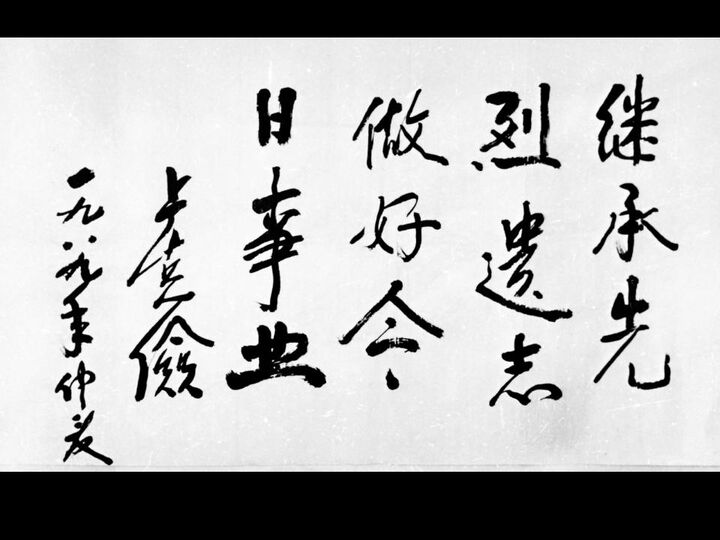 继承先
烈遗志
做好今
日事业
卢克儉
一九八九年仲夏